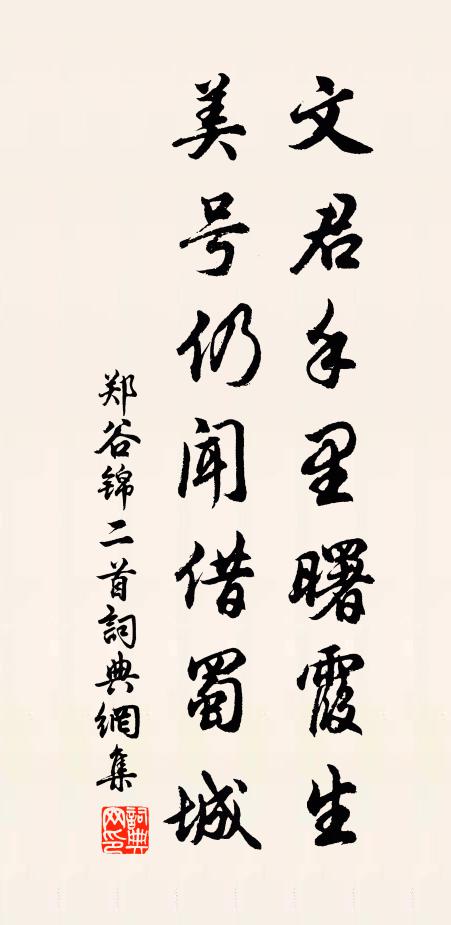 文君手里曙霞生
美号仍闻借蜀城
郑谷锦二首詞典網集
詞典網印